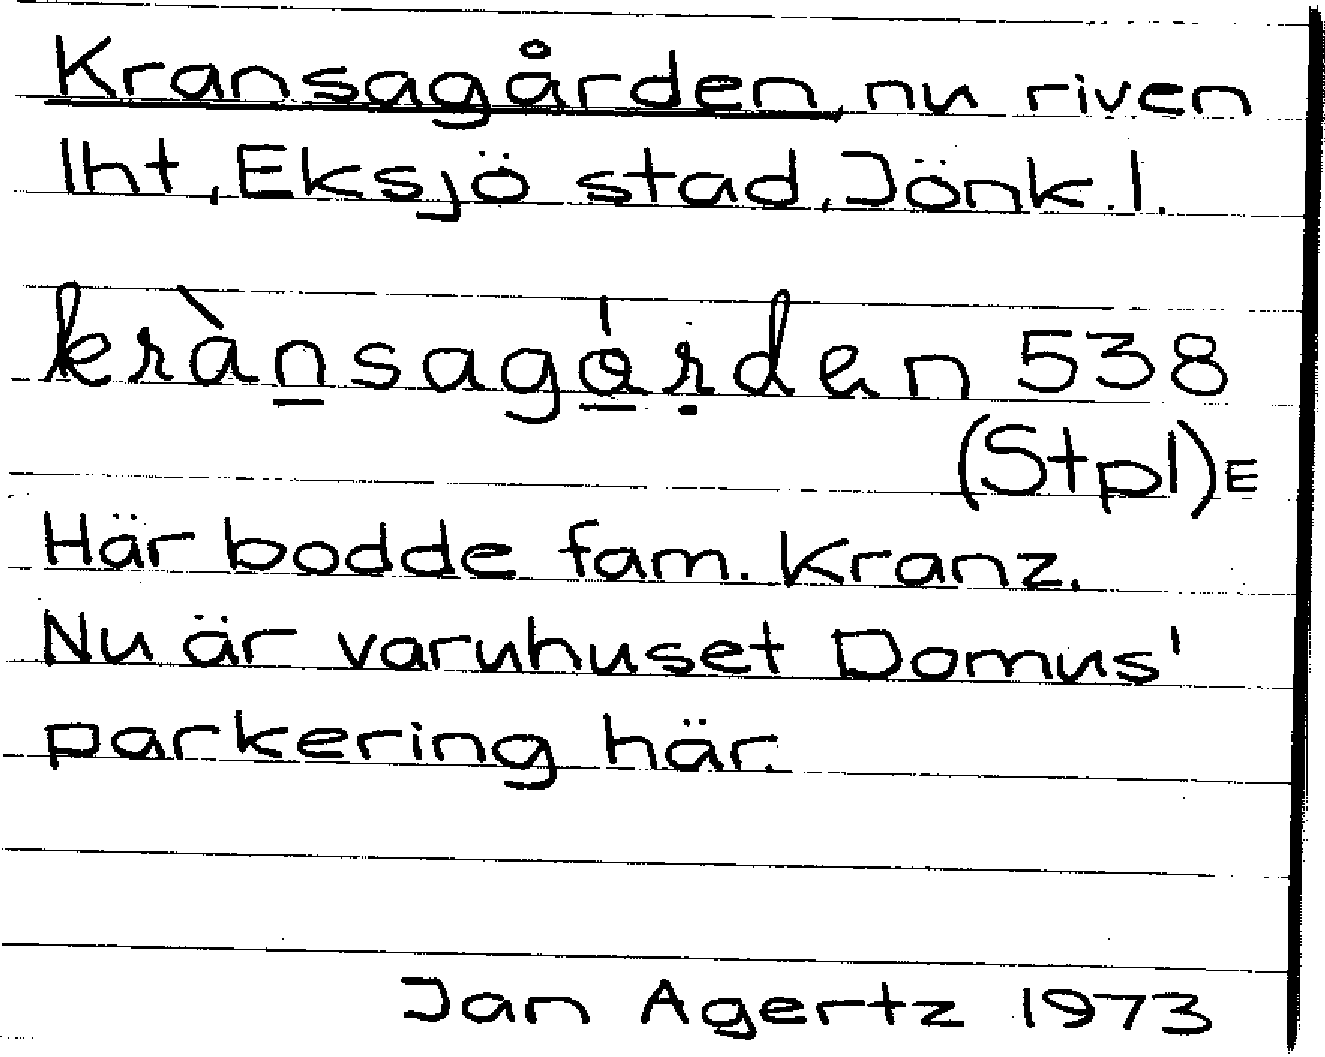 Kransagården, nu riven
lht, Eksjö stad, Jönk. l.
krànsagǻrden 538
(Stpl)E
Här bodde fam. Kranz.
Nu är varuhuset Domus'
parkering här.
Jan Agertz 1973